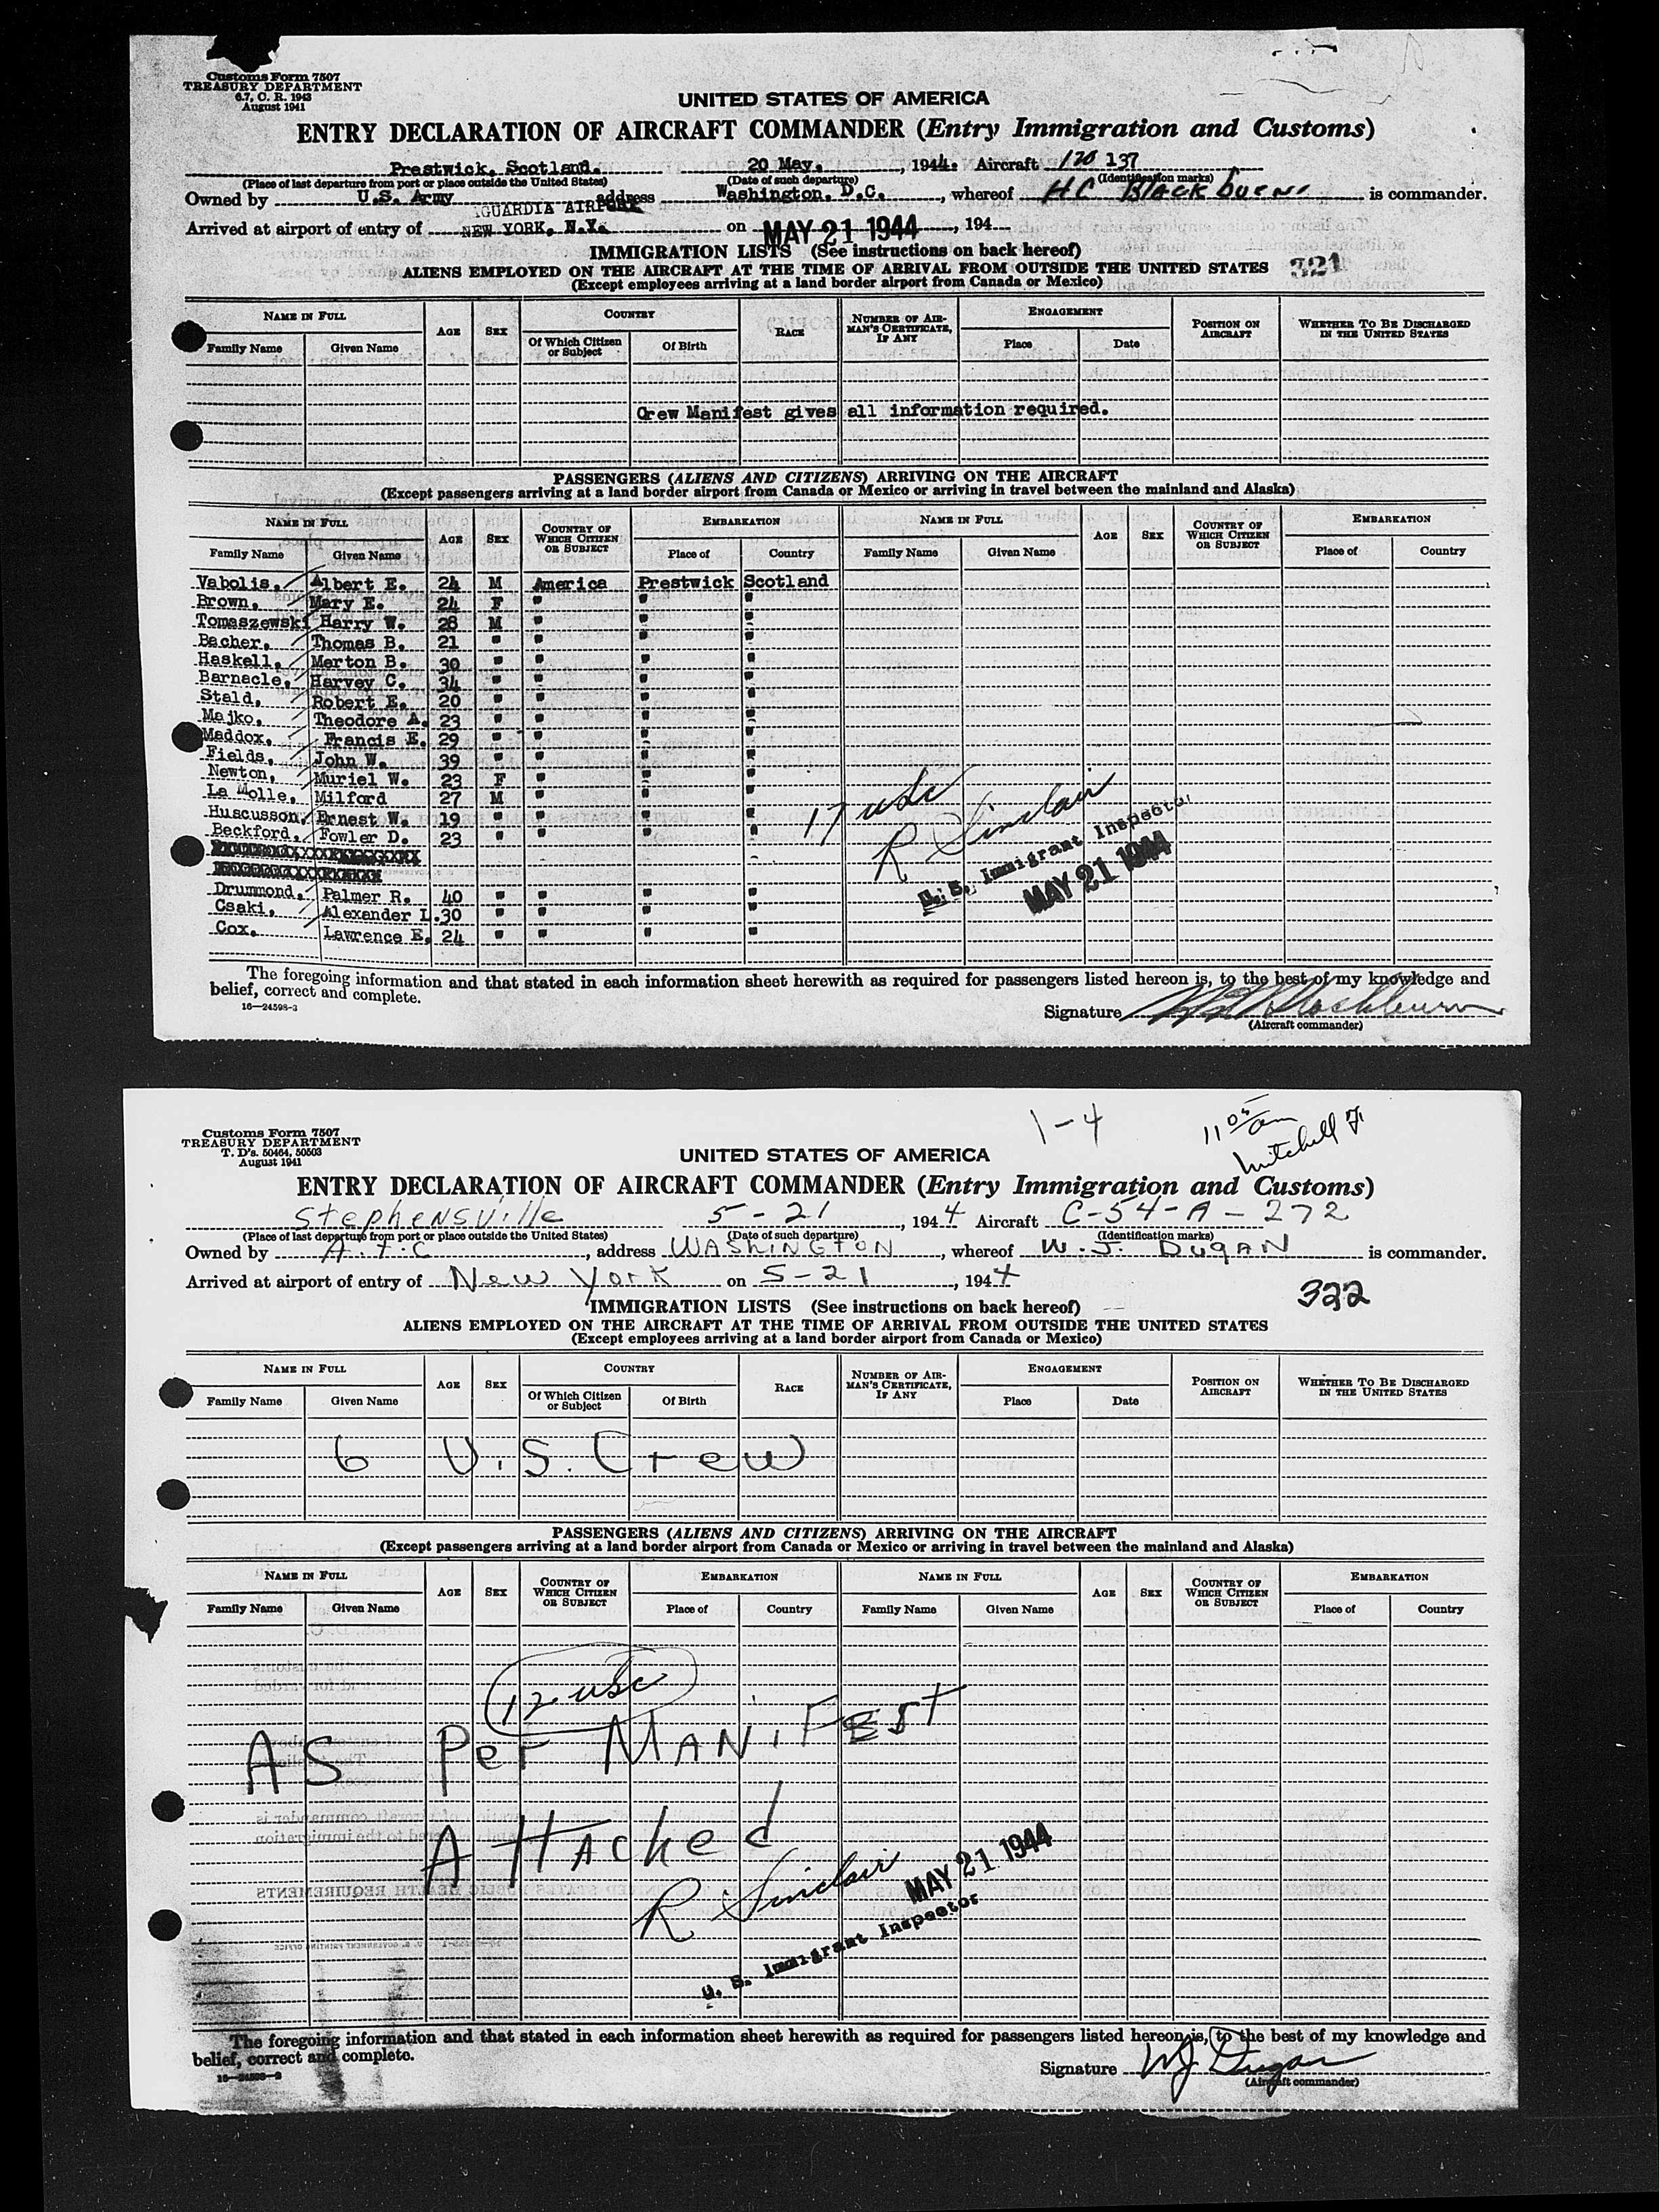 Customs Form 7507
TREASURY DEPARTMENT
6.7, C. R. 1943
August 1941
UNITED STATES OF AMERICA
ENTRY DECLARATION OF AIRCRAFT COMMANDER (Entry Immigration and Customs)
Prestwick, Scotland. 20 May, 1944. Aircraft 120 137
(Place of last departure from port or place outside the United States) (Date of such departure) (Identification marks)
Owned by U.S. Army address Washington, D.C., whereof HC Blackburn is commander.
GUARDIA AIRPORT
Arrived at airport of entry of NEW YORK, N.Y. on MAY 21 1944, 194
IMMIGRATION LISTS (See instructions on back hereof)
ALIENS EMPLOYED ON THE AIRCRAFT AT THE TIME OF ARRIVAL FROM OUTSIDE THE UNITED STATES 321
(Except employees arriving at a land border airport from Canada or Mexico)
NAME IN FULL AGE SEX COUNTRY RACE NUMBER OF AIRMAN'S CERTIFICATE, IF ANY ENGAGEMENT POSITION ON AIRCRAFT WHETHER TO BE DISCHARGED IN THE UNITED STATES
Family Name Given Name Of Which Citizen or Subject Of Birth Place Date
Crew Manifest gives all information required.
PASSENGERS (ALIENS AND CITIZENS) ARRIVING ON THE AIRCRAFT
(Except passengers arriving at a land border airport from Canada or Mexico or arriving in travel between the mainland and Alaska)
NAME IN FULL AGE SEX COUNTRY OF WHICH CITIZEN OR SUBJECT EMBARKATION NAME IN FULL AGE SEX COUNTRY OF WHICH CITIZEN OR SUBJECT EMBARKATION
Family Name Given Name Place of Country Family Name Given Name Place of Country
Vabolis, Albert E. 24 M America Prestwick Scotland
Brown, Mary E. 24 F " " "
Tomaszewski Harry W. 28 M " " "
Bacher, Thomas B. 21 " " " "
Haskell, Merton B. 30 " " " "
Barnacle, Harvey C. 34 " " " "
Stald, Robert E. 20 " " " "
Majko, Theodore A. 23 " " " "
Maddox, Francis E. 29 " " " "
Fields, John W. 39 " " " "
Newton, Muriel W. 23 F " " "
La Molle, Milford 27 M " " "
Huscusson, Ernest W. 19 " " " "
Beckford, Fowler D. 23 " " " "
Drummond, Palmer R. 40 " " " "
Csaki, Alexander L. 30 " " " "
Cox, Lawrence E. 24 " " " "
17 usc
R Sinclair
U. S. Immigrant Inspector
MAY 21 1944
The foregoing information and that stated in each information sheet herewith as required for passengers listed hereon is, to the best of my knowledge and
belief, correct and complete.
16—24598-3
Signature HC Blackburn
(Aircraft commander)
1-4
11 05 am
Mitchell F.
Customs Form 7507
TREASURY DEPARTMENT
T. D's. 50464, 50503
August 1941
UNITED STATES OF AMERICA
ENTRY DECLARATION OF AIRCRAFT COMMANDER (Entry Immigration and Customs)
Stephensville 5-21, 1944 Aircraft C-54-A-272
(Place of last departure from port or place outside the United States) (Date of such departure) (Identification marks)
Owned by A.T.C, address WASHINGTON, whereof W. J. DUGAN is commander.
Arrived at airport of entry of New York on 5-21, 1944
322
IMMIGRATION LISTS (See instructions on back hereof)
ALIENS EMPLOYED ON THE AIRCRAFT AT THE TIME OF ARRIVAL FROM OUTSIDE THE UNITED STATES
(Except employees arriving at a land border airport from Canada or Mexico)
NAME IN FULL AGE SEX COUNTRY RACE NUMBER OF AIRMAN'S CERTIFICATE, IF ANY ENGAGEMENT POSITION ON AIRCRAFT WHETHER TO BE DISCHARGED IN THE UNITED STATES
Family Name Given Name Of Which Citizen or Subject Of Birth Place Date
6 U.S. Crew
PASSENGERS (ALIENS AND CITIZENS) ARRIVING ON THE AIRCRAFT
(Except passengers arriving at a land border airport from Canada or Mexico or arriving in travel between the mainland and Alaska)
NAME IN FULL AGE SEX COUNTRY OF WHICH CITIZEN OR SUBJECT EMBARKATION NAME IN FULL AGE SEX COUNTRY OF WHICH CITIZEN OR SUBJECT EMBARKATION
Family Name Given Name Place of Country Family Name Given Name Place of Country
12 usc
AS Per MANiFEST
Attached
R Sinclair
MAY 21 1944
U. S. Immigrant Inspector
The foregoing information and that stated in each information sheet herewith as required for passengers listed hereon is, to the best of my knowledge and
belief, correct and complete.
Signature WJ Dugan
(Aircraft commander)